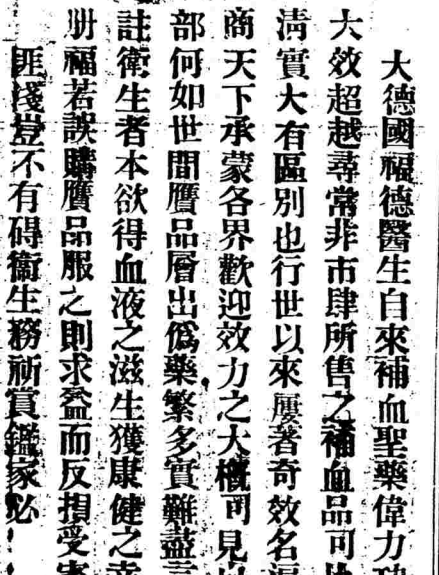 大德國福德醫生自來補血聖藥偉力
大效超越尋常非市肆所售之補血品可
清實大有區別也行世以來屢著奇效名
商天下承蒙各界歡迎效力之大槪可見
部何如世間贋品層出僞藥繁多實難盡
註衛生者本欲得血液之滋生獲康健之幸
册福若誤購贋品服之則求益而反損受害
匪淺豈不有碍衛生務祈賞鑑家必